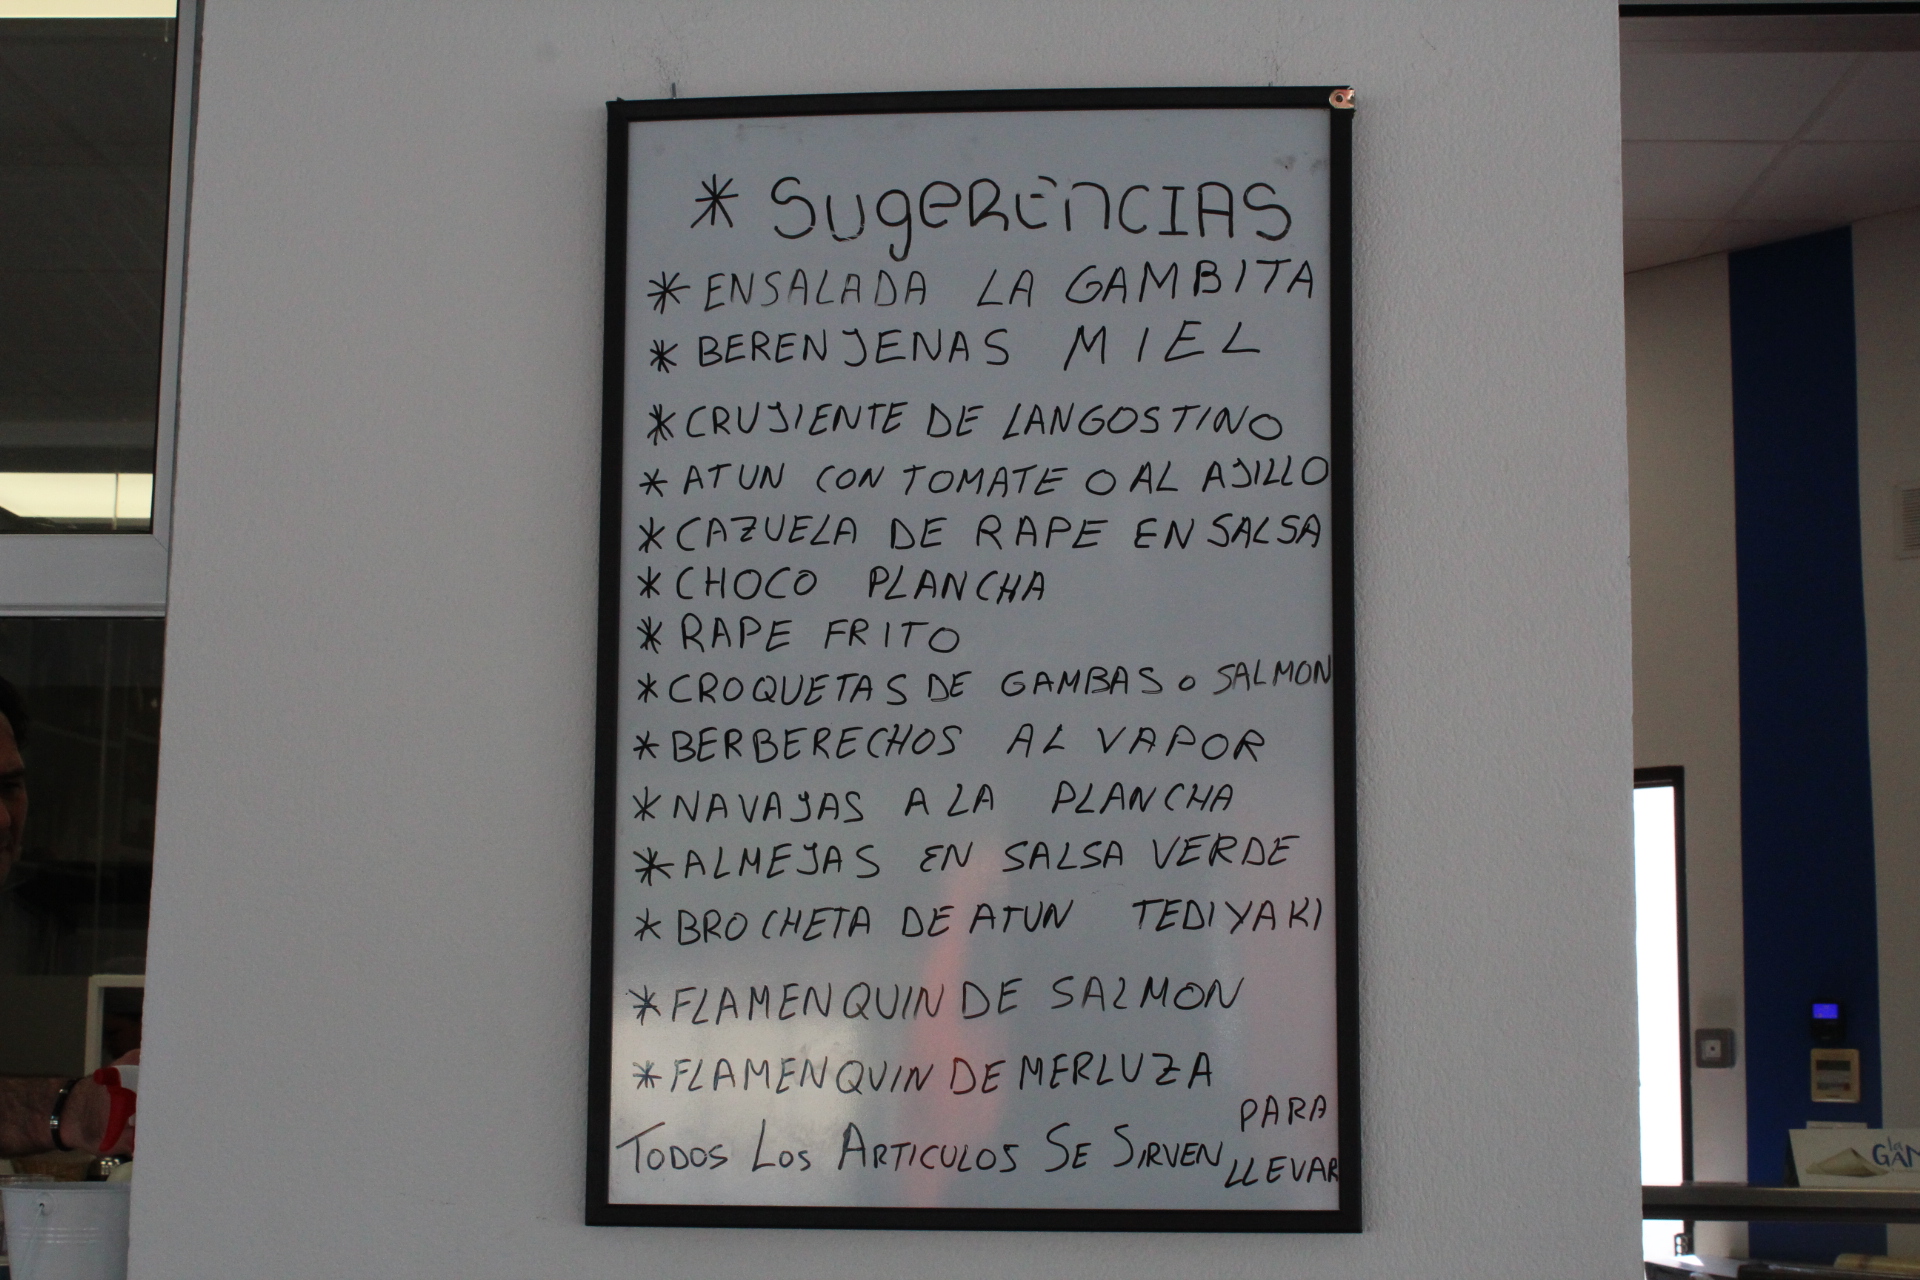 * SugeRENCIAS
* ENSALADA LA GAMBITA
* BERENJENAS MIEL
* CRUJIENTE DE LANGOSTINO
* ATUN CON TOMATE O AL AJILLO
* CAZUELA DE RAPE EN SALSA
* CHOCO PLANCHA
* RAPE FRITO
* CROQUETAS DE GAMBAS o SALMON
* BERBERECHOS AL VAPOR
* NAVAJAS A LA PLANCHA
* ALMEJAS EN SALSA VERDE
* BROCHETA DE ATUN TEDIYAKI
* FLAMENQUIN DE SALMON
* FLAMENQUIN DE MERLUZA
TODOS LOS ARTICULOS SE SIRVEN PARA
LLEVAR
la